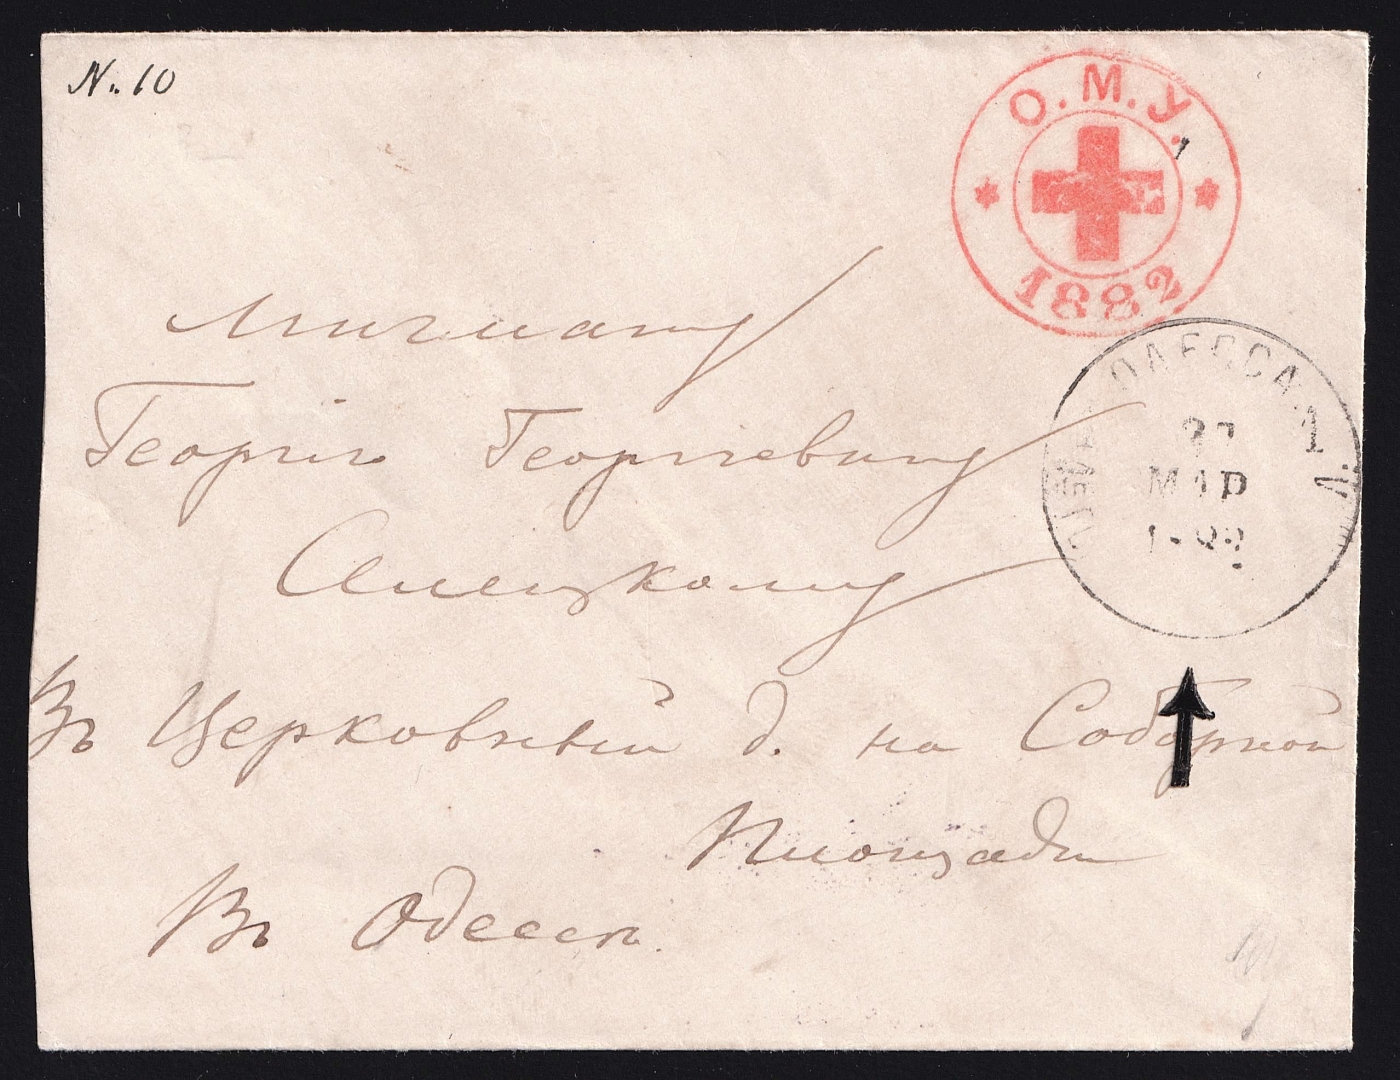 N. 10
О. М. У.
1882
ОДЕССА
1
27
МАР
1882
Георгію Георгіевичу
Въ Церковный д. на Соборной
Площади
Въ Одессѣ.